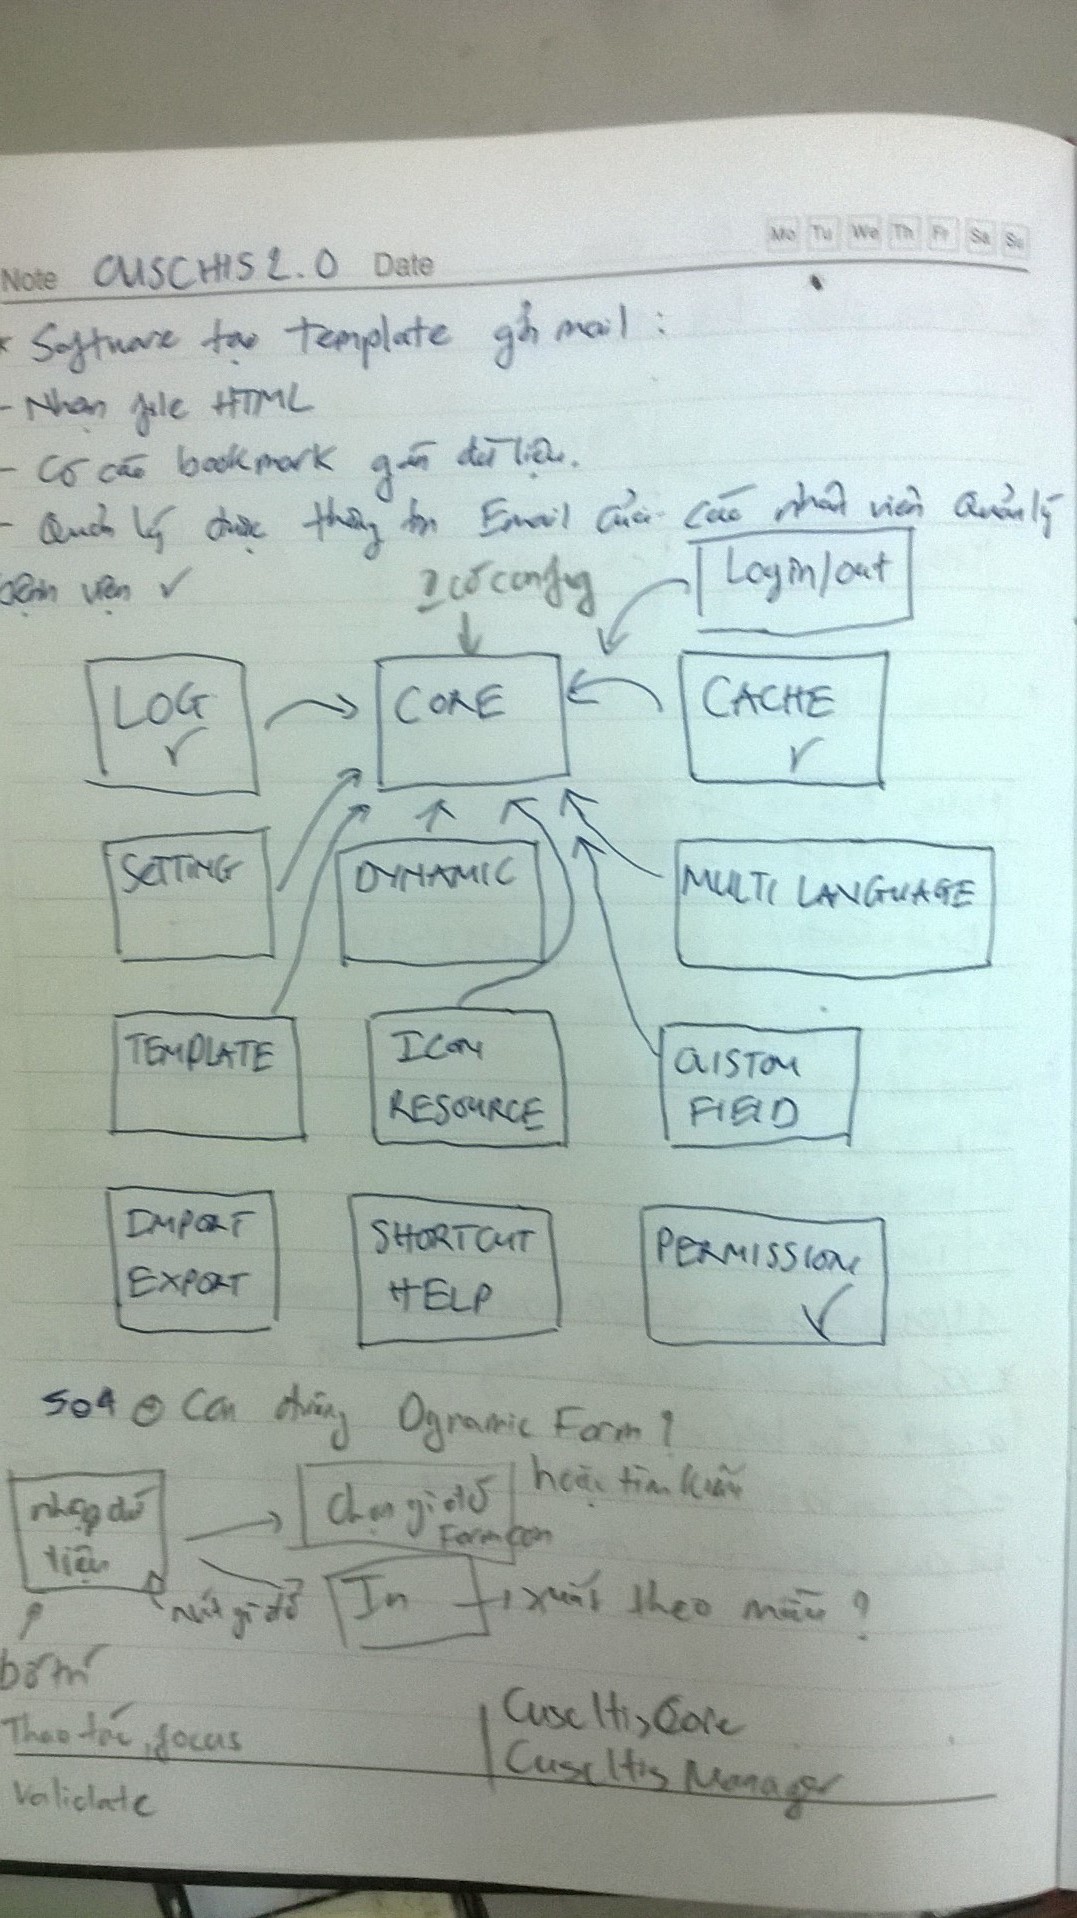 Mo Tu We Th Fr Sa Su
Note CUSCHIS 2.0 Date
* Software tạo template gửi mail :
- Nhận file HTML
- Có các bookmark gắn dữ liệu.
- Quản lý được thông tin Email của các nhân viên Quản lý
bệnh viện ✓
Login/out
? có config
LOG ✓
CORE
CACHE ✓
SETTING
DYNAMIC
MULTI LANGUAGE
TEMPLATE
ICON
RESOURCE
CUSTOM
FIELD
IMPORT
EXPORT
SHORTCUT
HELP
PERMISSION ✓
Con đường Dynamic Form ?
nhập dữ
liệu
Chọn gì đó
Form con
hoặc tìm kiếm
nút gì đó
In
xuất theo mẫu ?
bố trí
Thao tác, focus
Validate
CuscHisCore
CuscHis Manager